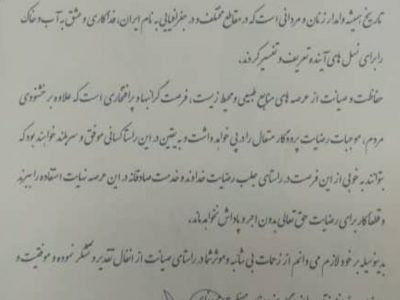 تاریخ همیشه وامدار زنان و مردانی است که در مقاطع مختلف و در جغرافیایی به نام ایران، فداکاری و عشق به آب و خاک
را برای نسل های آینده تعریف و تفسیر کردند.
حفاظت و صیانت از عرصه های منابع طبیعی و محیط زیست، فرصت گرانبها و پرافتخاری است که علاوه بر خشنودی
مردم، موجبات رضایت پروردگار متعال را در پی خواهد داشت و به یقین در این راستا کسانی موفق و سربلند خواهند بود که
بتوانند به خوبی از این فرصت در راستای جلب رضایت خداوند و خدمت صادقانه در این عرصه نهایت استفاده را ببرند
و قطعا کار برای رضایت حق تعالی بدون اجر و پاداش نخواهد ماند.
بدینوسیله بر خود لازم می دانم از زحمات بی شائبه و موثر شما در راستای صیانت از انفال تقدیر و تشکر نموده و موفقیت و